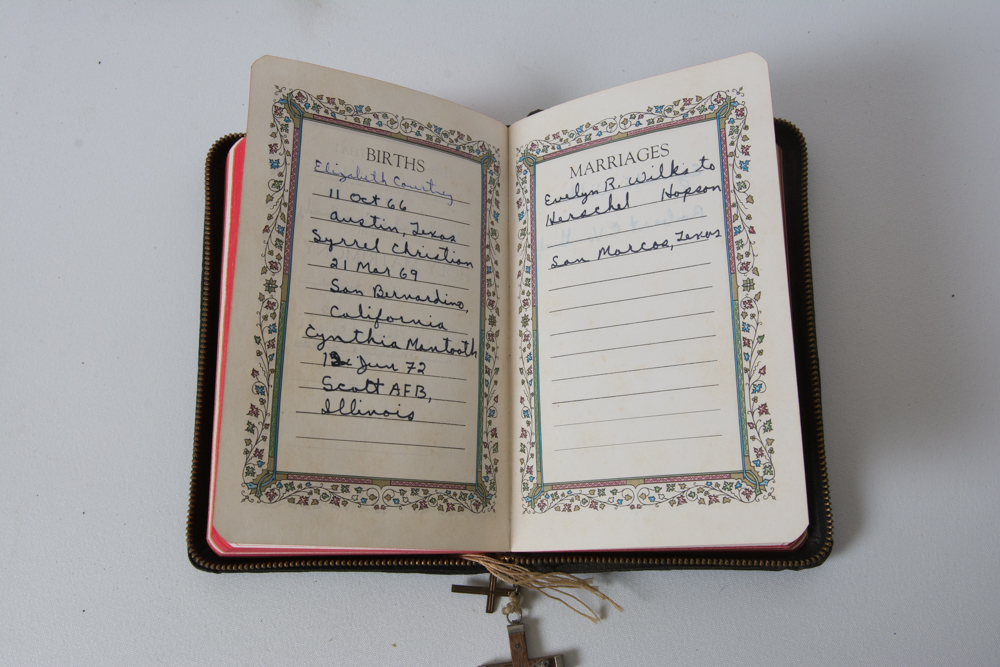 BIRTHS
Elizabeth Courtney
11 Oct 66
Austin, Texas
Syrrel Christian
21 Mar 69
San Bernardino,
California
Cynthia Mantooth
June 72
Scott AFB,
Illinois
MARRIAGES
Evelyn R. Wilks to
Herschel Hopson
San Marcos, Texas